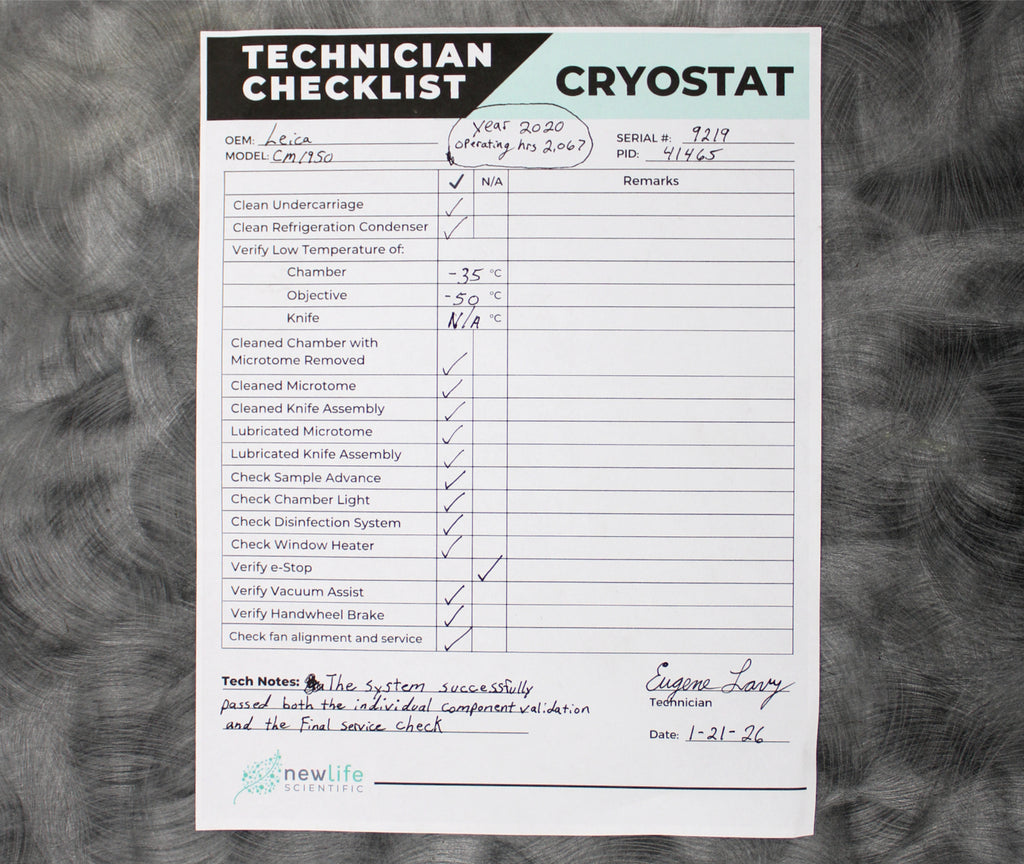 TECHNICIAN
CHECKLIST
CRYOSTAT
Year 2020
Operating hrs 2,067
OEM: Leica
MODEL: CM1950
SERIAL #: 9219
PID: 41465
✓ N/A Remarks
Clean Undercarriage ✓
Clean Refrigeration Condenser ✓
Verify Low Temperature of:
Chamber -35 °C
Objective -50 °C
Knife N/A °C
Cleaned Chamber with
Microtome Removed ✓
Cleaned Microtome ✓
Cleaned Knife Assembly ✓
Lubricated Microtome ✓
Lubricated Knife Assembly ✓
Check Sample Advance ✓
Check Chamber Light ✓
Check Disinfection System ✓
Check Window Heater ✓
Verify e-Stop ✓
Verify Vacuum Assist ✓
Verify Handwheel Brake ✓
Check fan alignment and service ✓
Tech Notes: The system successfully
passed both the individual component validation
and the Final service check
Eugene Lavy
Technician
Date: 1-21-26
newlife
SCIENTIFIC